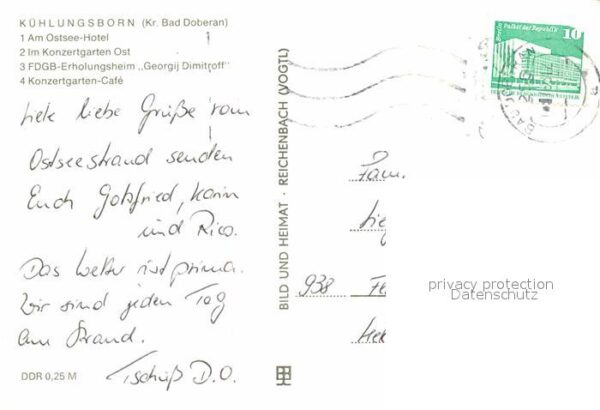 KÜHLUNGSBORN (Kr. Bad Doberan)
1 Am Ostsee-Hotel
2 Im Konzertgarten Ost
3 FDGB-Erholungsheim „Georgij Dimitroff"
4 Konzertgarten-Café
Viele liebe Grüße vom
Ostseestrand senden
Euch Gottfried, Karin
und Rico.
Das Wetter ist prima.
Wir sind jeden Tag
am Strand.
Tschüß D.O.
DDR 0,25 M
BILD UND HEIMAT · REICHENBACH (VOGTL)
Berlin, Palast der Republik
10
Fam.
938
privacy protection
Datenschutz